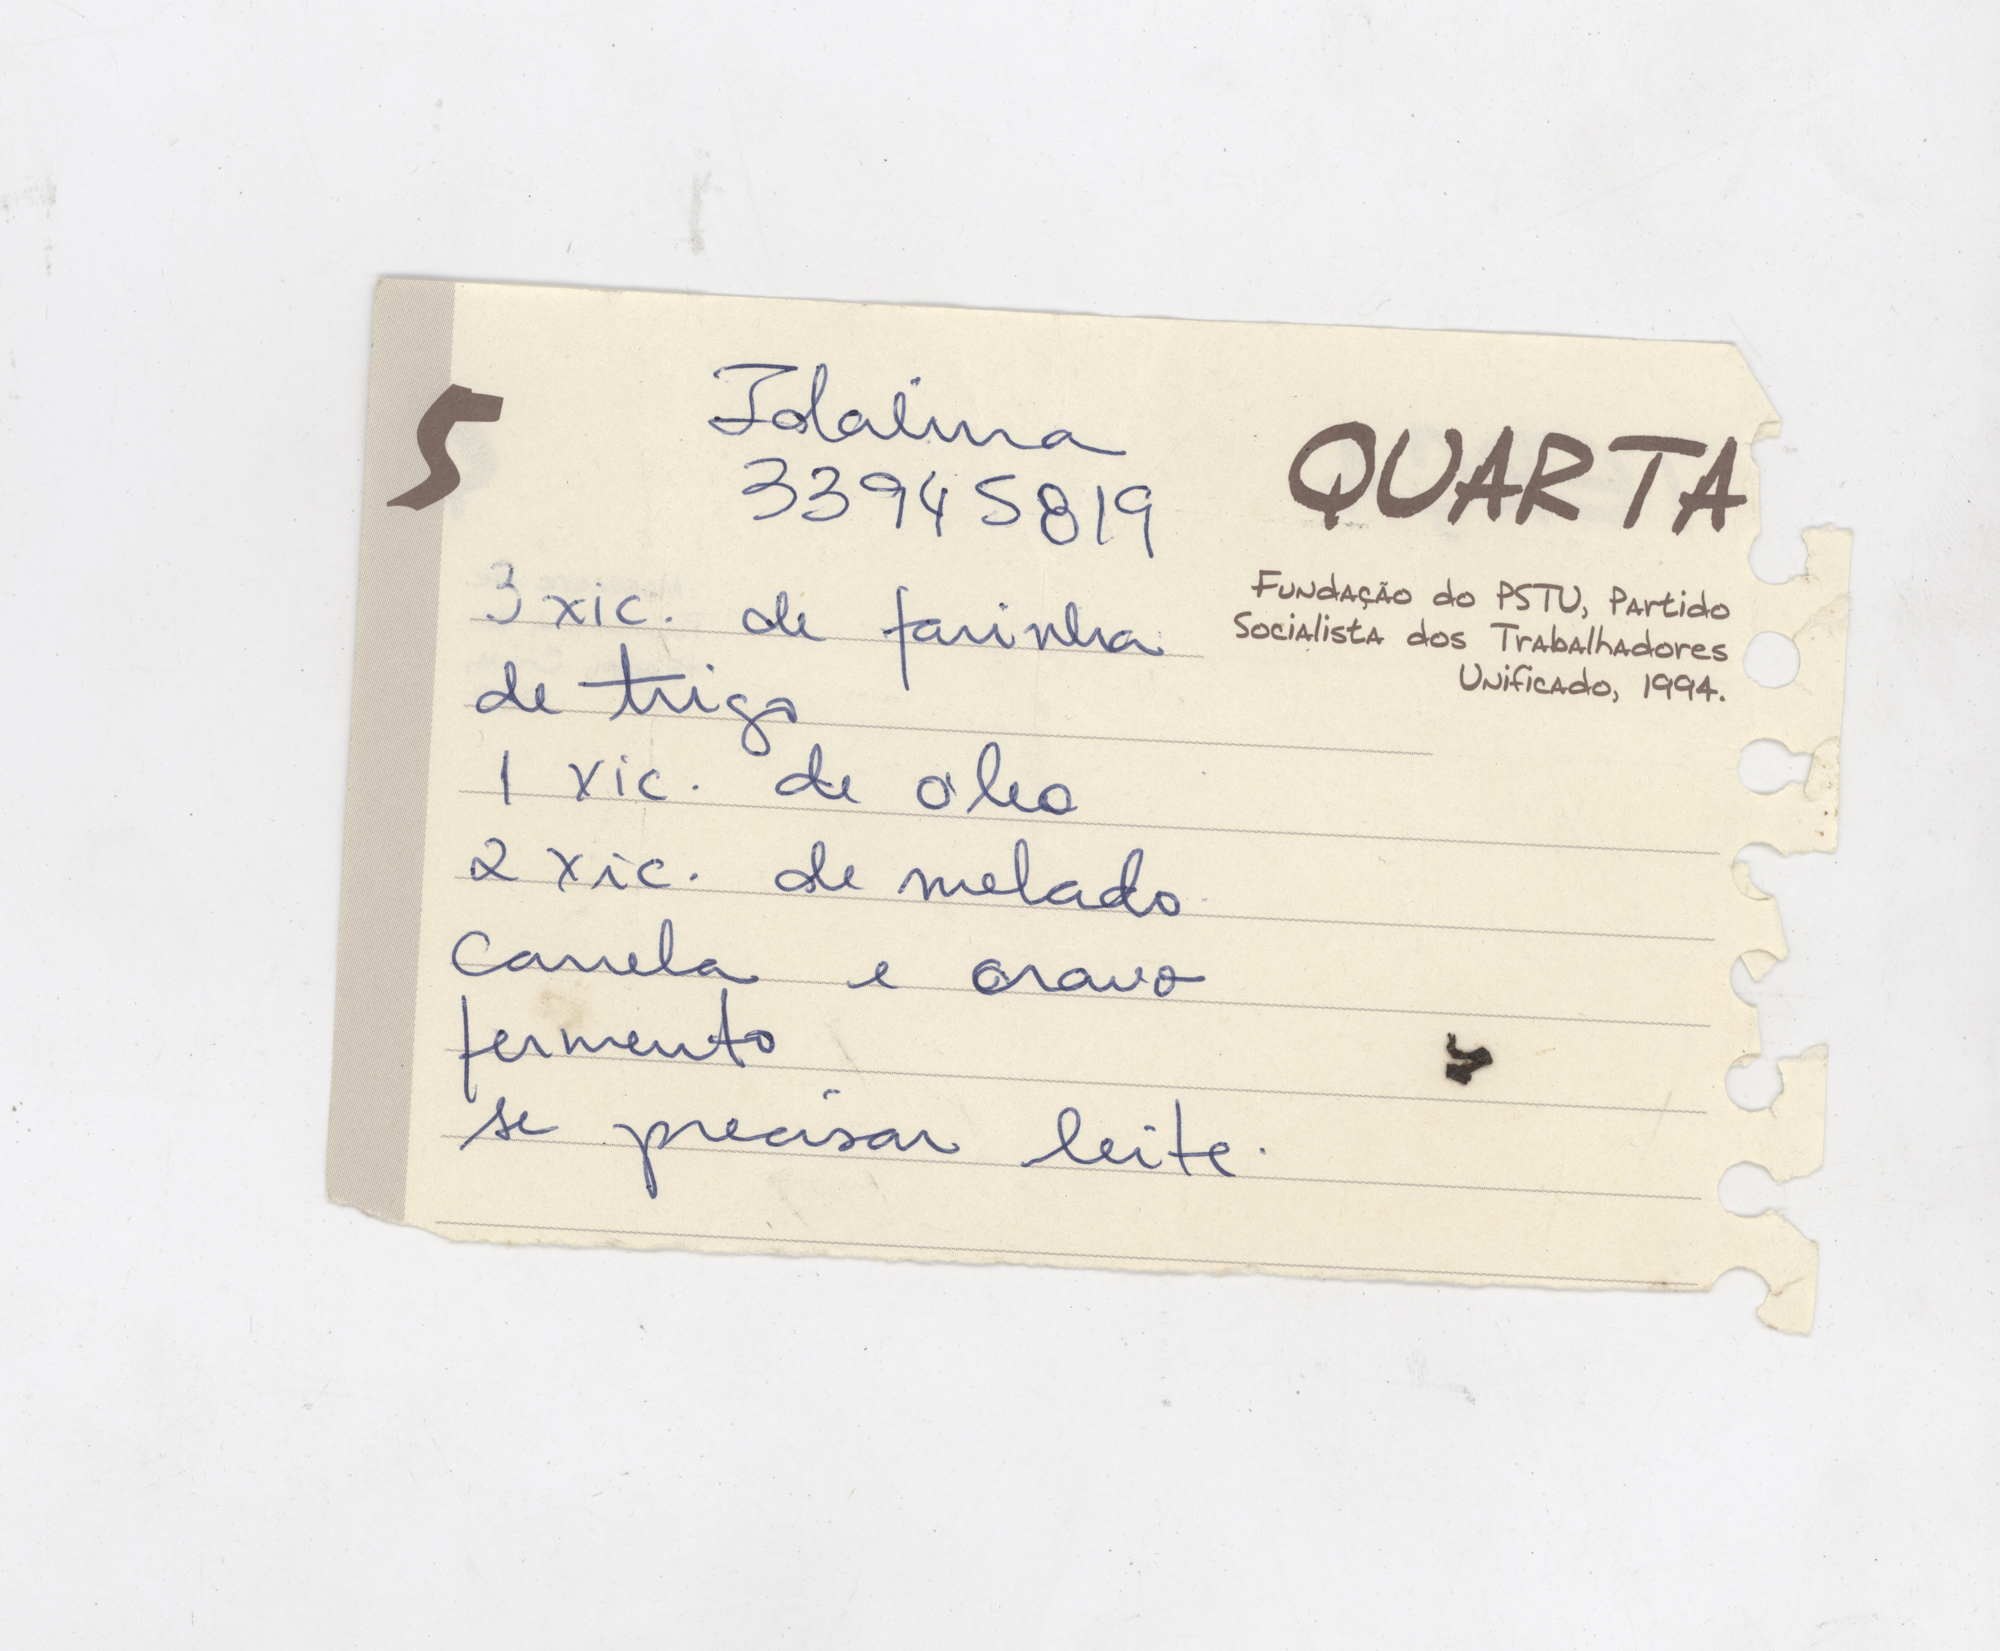 5
Idalina
33945819
QUARTA
Fundação do PSTU, Partido
Socialista dos Trabalhadores
Unificado, 1994.
3 xic. de farinha
de trigo
1 xic. de óleo
2 xic. de melado
canela e cravo
fermento
se precisar leite.